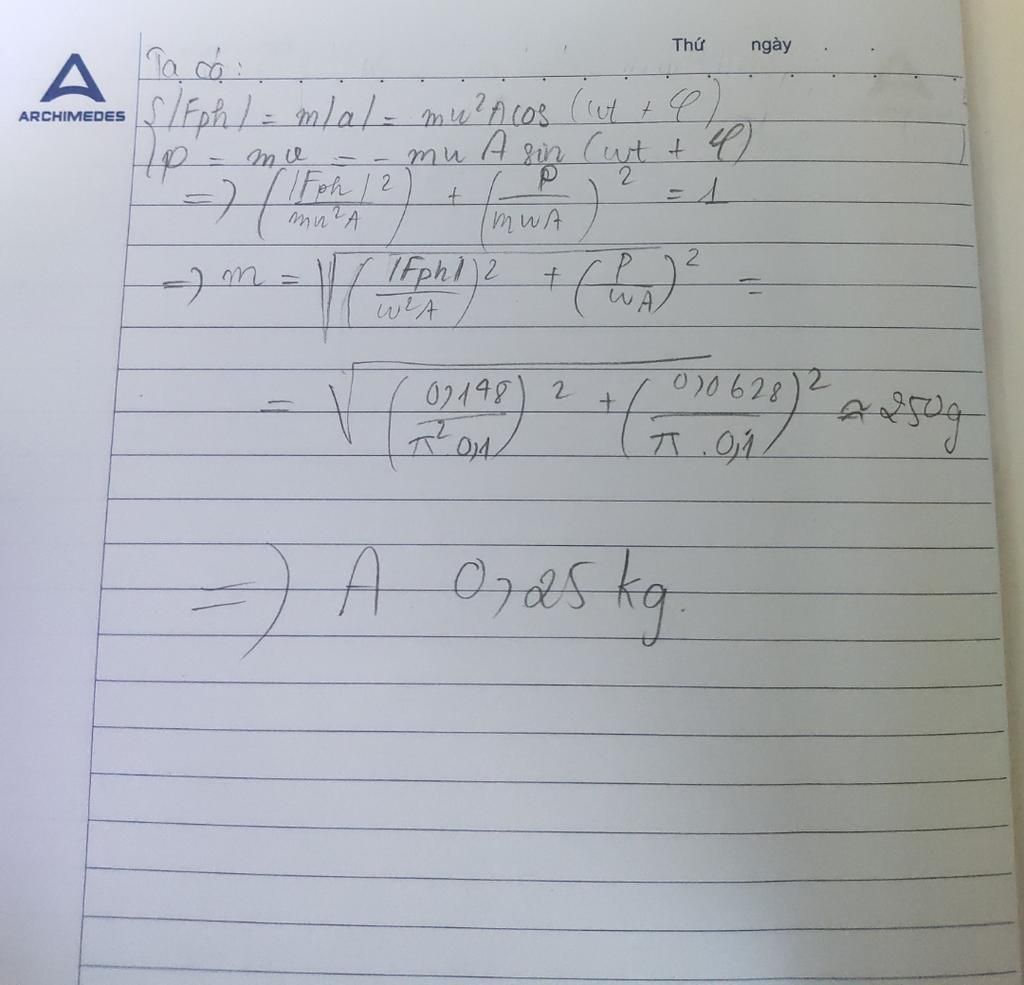 Thứ ngày . .
ARCHIMEDES
Ta có:
{|Fph| = m|a| = mω²A cos (ωt + φ)
p = mv = - mωA sin (ωt + φ)
=> (|Fph|/mω²A)² + (p/mωA)² = 1
=> m = √(|Fph|/ω²A)² + (p/ωA)² =
= √(0,148/π² 0,1)² + (0,0628/π . 0,1)² ≈ 250g
=> A 0,25 kg.